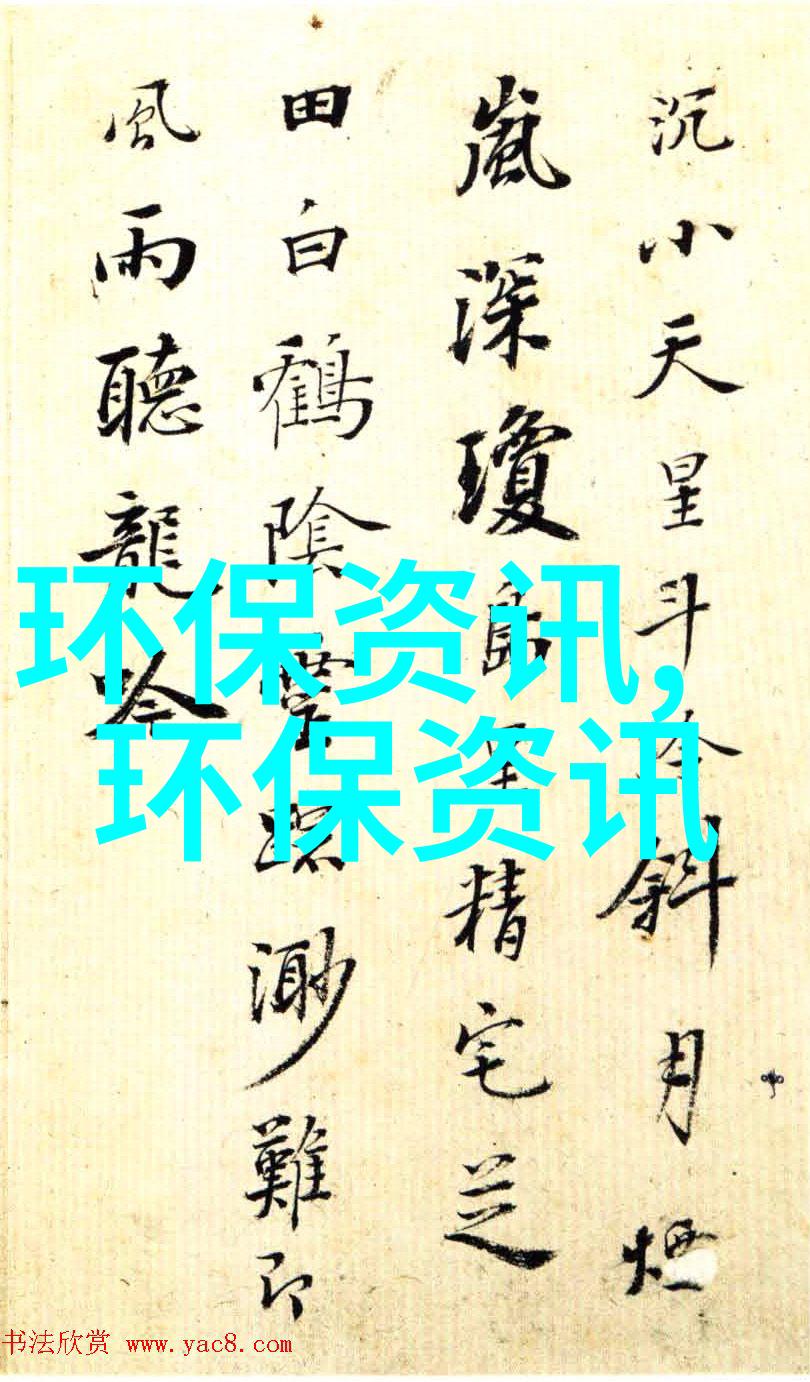 沉小天星斗斜月煙
嵐深瓊島精宅芝
田白鶴陰渺難即
風雨聽龍吟
环保资讯,
环保资讯
书法欣赏 www.yac8.com